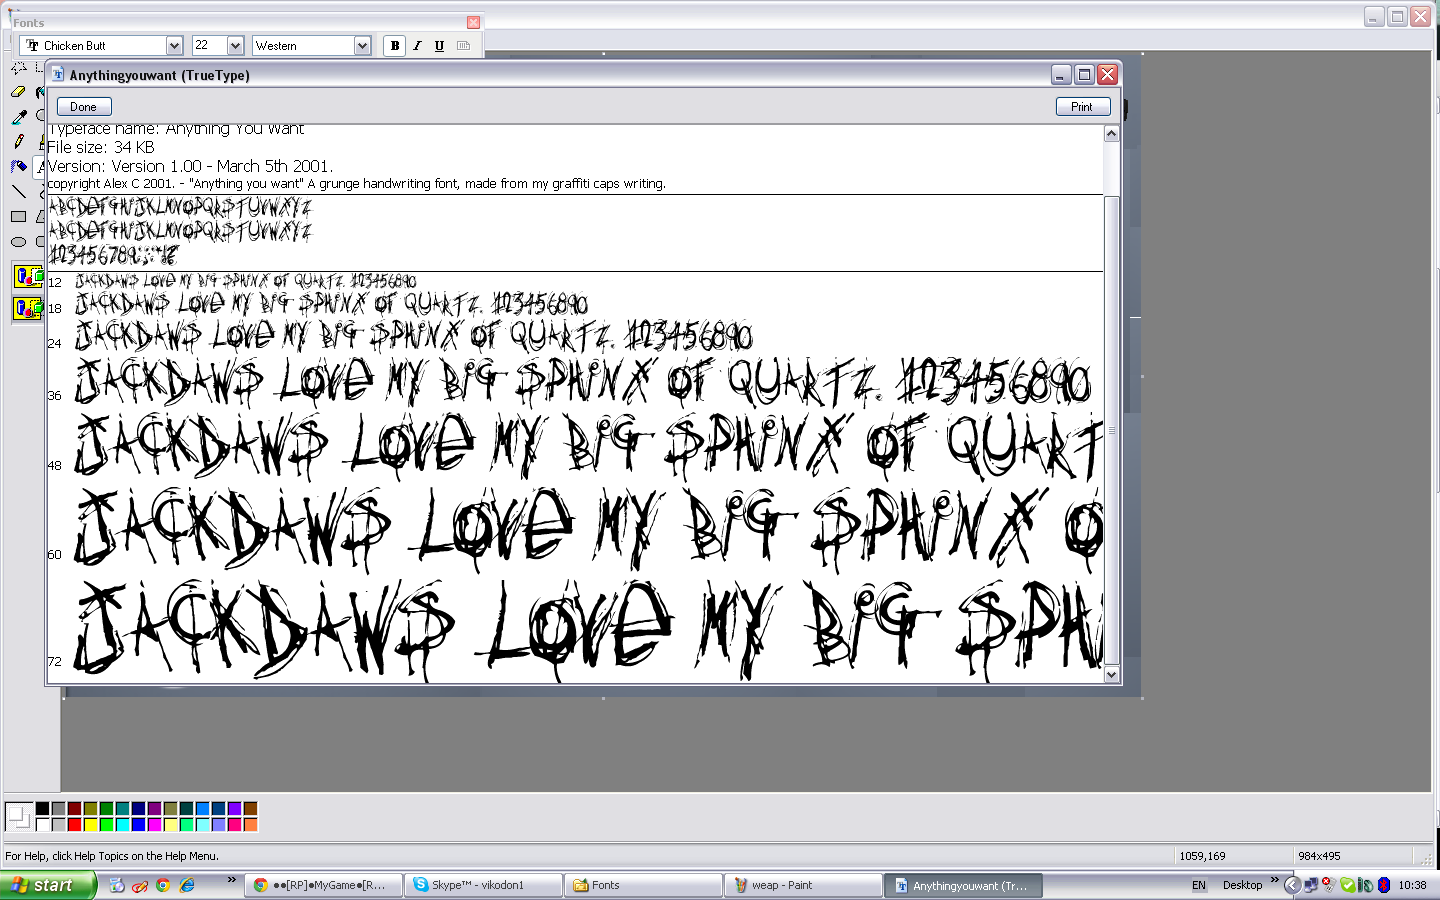 Fonts
Chicken Butt 22 Western B I U
Anythingyouwant (TrueType)
Done Print
Typeface name: Anything You Want
File size: 34 KB
Version: Version 1.00 - March 5th 2001.
copyright Alex C 2001. - "Anything you want" A grunge handwriting font, made from my graffiti caps writing.
ABCDEFGHIJKLMNOPQRSTUVWXYZ
ABCDEFGHIJKLMNOPQRSTUVWXYZ
123456789.:,;
12 JACKDAWS LOVE MY BIG SPHINX OF QUARTZ. 123456890
18 JACKDAWS LOVE MY BIG SPHINX OF QUARTZ. 123456890
24 JACKDAWS LOVE MY BIG SPHINX OF QUARTZ. 123456890
36 JACKDAWS LOVE MY BIG SPHINX OF QUARTZ. 123456890
48 JACKDAWS LOVE MY BIG SPHINX OF QUART
60 JACKDAWS LOVE MY BIG SPHINX O
72 JACKDAWS LOVE MY BIG SPHI
For Help, click Help Topics on the Help Menu. 1059,169 984x495
start ●●[RP]●MyGame●[R... Skype™ - vikodon1 Fonts weap - Paint Anythingyouwant (Tr... EN Desktop 10:38